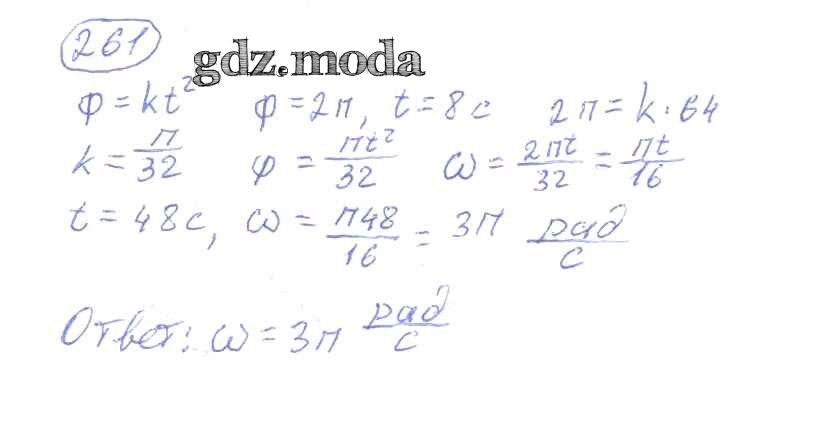 261
gdz.moda
φ = kt² φ = 2π, t = 8 с 2π = k · 64
k = π/32 φ = πt²/32 ω = 2πt/32 = πt/16
t = 48 с, ω = π48/16 = 3π рад/с
Ответ: ω = 3π рад/с